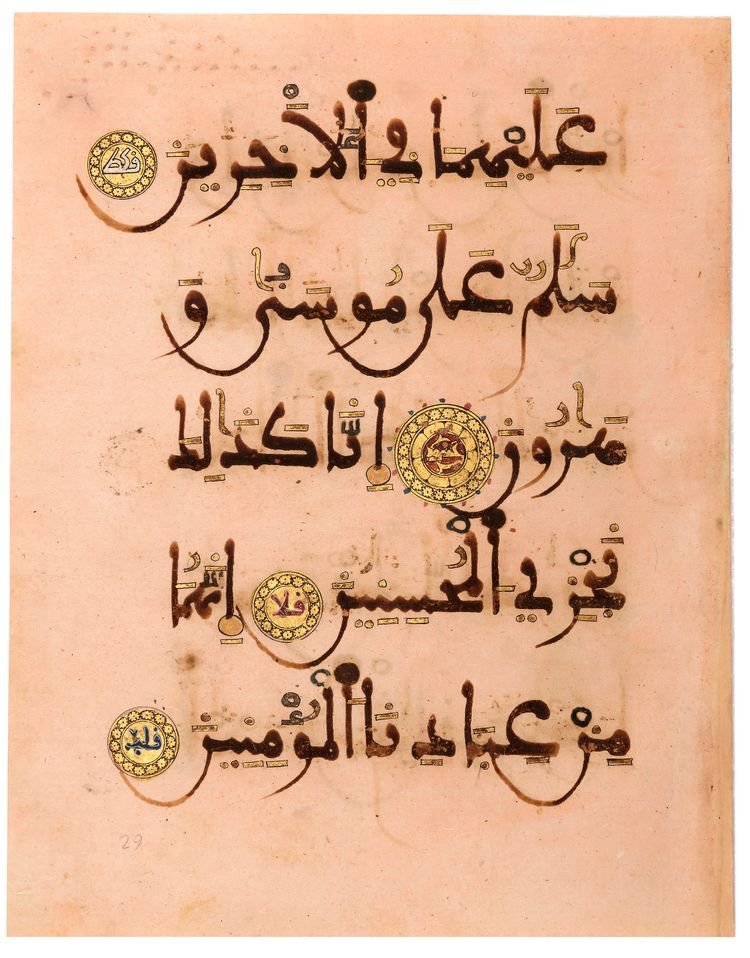 عَلَيْهِمَا فِي اَلْأَخِرِينَ
سَلَٰمٌ عَلَىٰ مُوسَىٰ وَ
هَٰرُونَ إِنَّا كَذَٰلِكَ
نَجْزِي اَلْمُحْسِنِينَ إِنَّهُمَا
مِنْ عِبَادِنَا اَلْمُؤْمِنِينَ
29